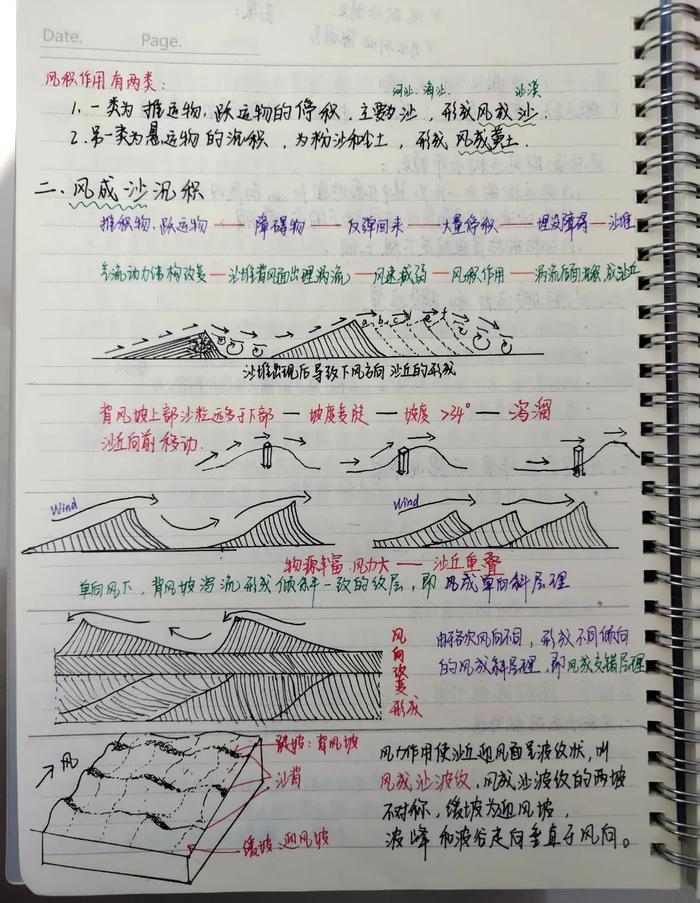 Date. Page.
风积作用有两类：
河北.海北 沙漠
1. 一类为推运物.跃运物的停积，主要为沙，形成风成沙.
2. 另一类为悬运物的沉积，为粉沙和尘土，形成风成黄土.
二.风成沙沉积
推积物.跃运物 — 障碍物 — 反弹回来 — 大量停积 — 埋没障碍 — 沙堆
气流动力结构改变 — 沙堆背风面出现涡流 — 风速减弱 — 风积作用 — 涡流后面沙积成沙丘
a b c d e f
沙堆出现后导致下风方向沙丘的形成
背风坡上部沙粒远多于下部 — 坡度变陡 — 坡度 >34° — 泻溜
沙丘向前移动.
Wind Wind
物源丰富.风力大 — 沙丘重叠
单向风下，背风坡泻流形成倾斜一致的纹层，即风成单向斜层理
风向改变形成
由于各次风向不同，形成不同倾向
的风成斜层理，即风成交错层理
风
陡坡：背风坡
沙脊
缓坡：迎风坡
风力作用使沙丘迎风面呈波纹状，叫
风成沙波纹，风成沙波纹的两坡
不对称，缓坡为迎风坡，
波峰和波谷走向垂直于风向。